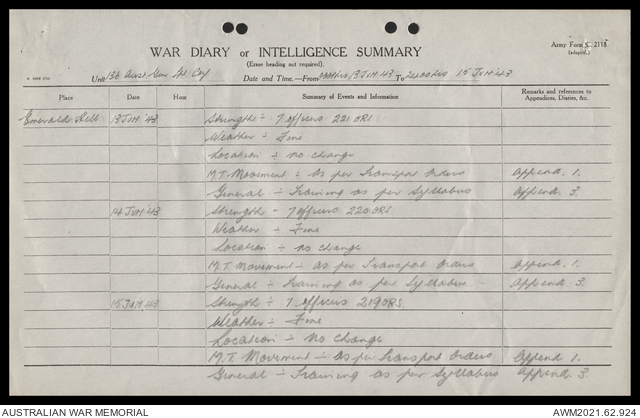 WAR DIARY or INTELLIGENCE SUMMARY
Army Form C. 2118
(Erase heading not required).
(adapted.)
Unit 136 Aust Gen Tpt Coy Date and Time.—From 0001hrs 13 JUN 43 To 2400hrs 15 JUN '43
Place Date Hour Summary of Events and Information Remarks and references to
Appendices, Diaries, &c.
Emerald Hill 13 JUN '43 Strength ÷ 7 officers 221 ORS
Weather ÷ Fine
Location ÷ no change
M.T. Movement ÷ As per Transport Orders Append. 1.
General ÷ Training as per Syllabus Append 3.
14 JUN '43 Strength - 7 officers 220 ORS.
Weather ÷ Fine
Location ÷ no change
M.T. Movement ÷ As per Transport Orders Append. 1.
General ÷ Training as per Syllabus Append 3.
15 JUN 43 Strength ÷ 7 officers 219 ORS.
Weather ÷ Fine
Location ÷ No change
M.T. Movement ÷ As per Transport Orders Append 1.
General ÷ Training as per Syllabus Append 3
AUSTRALIAN WAR MEMORIAL AWM2021.62.924